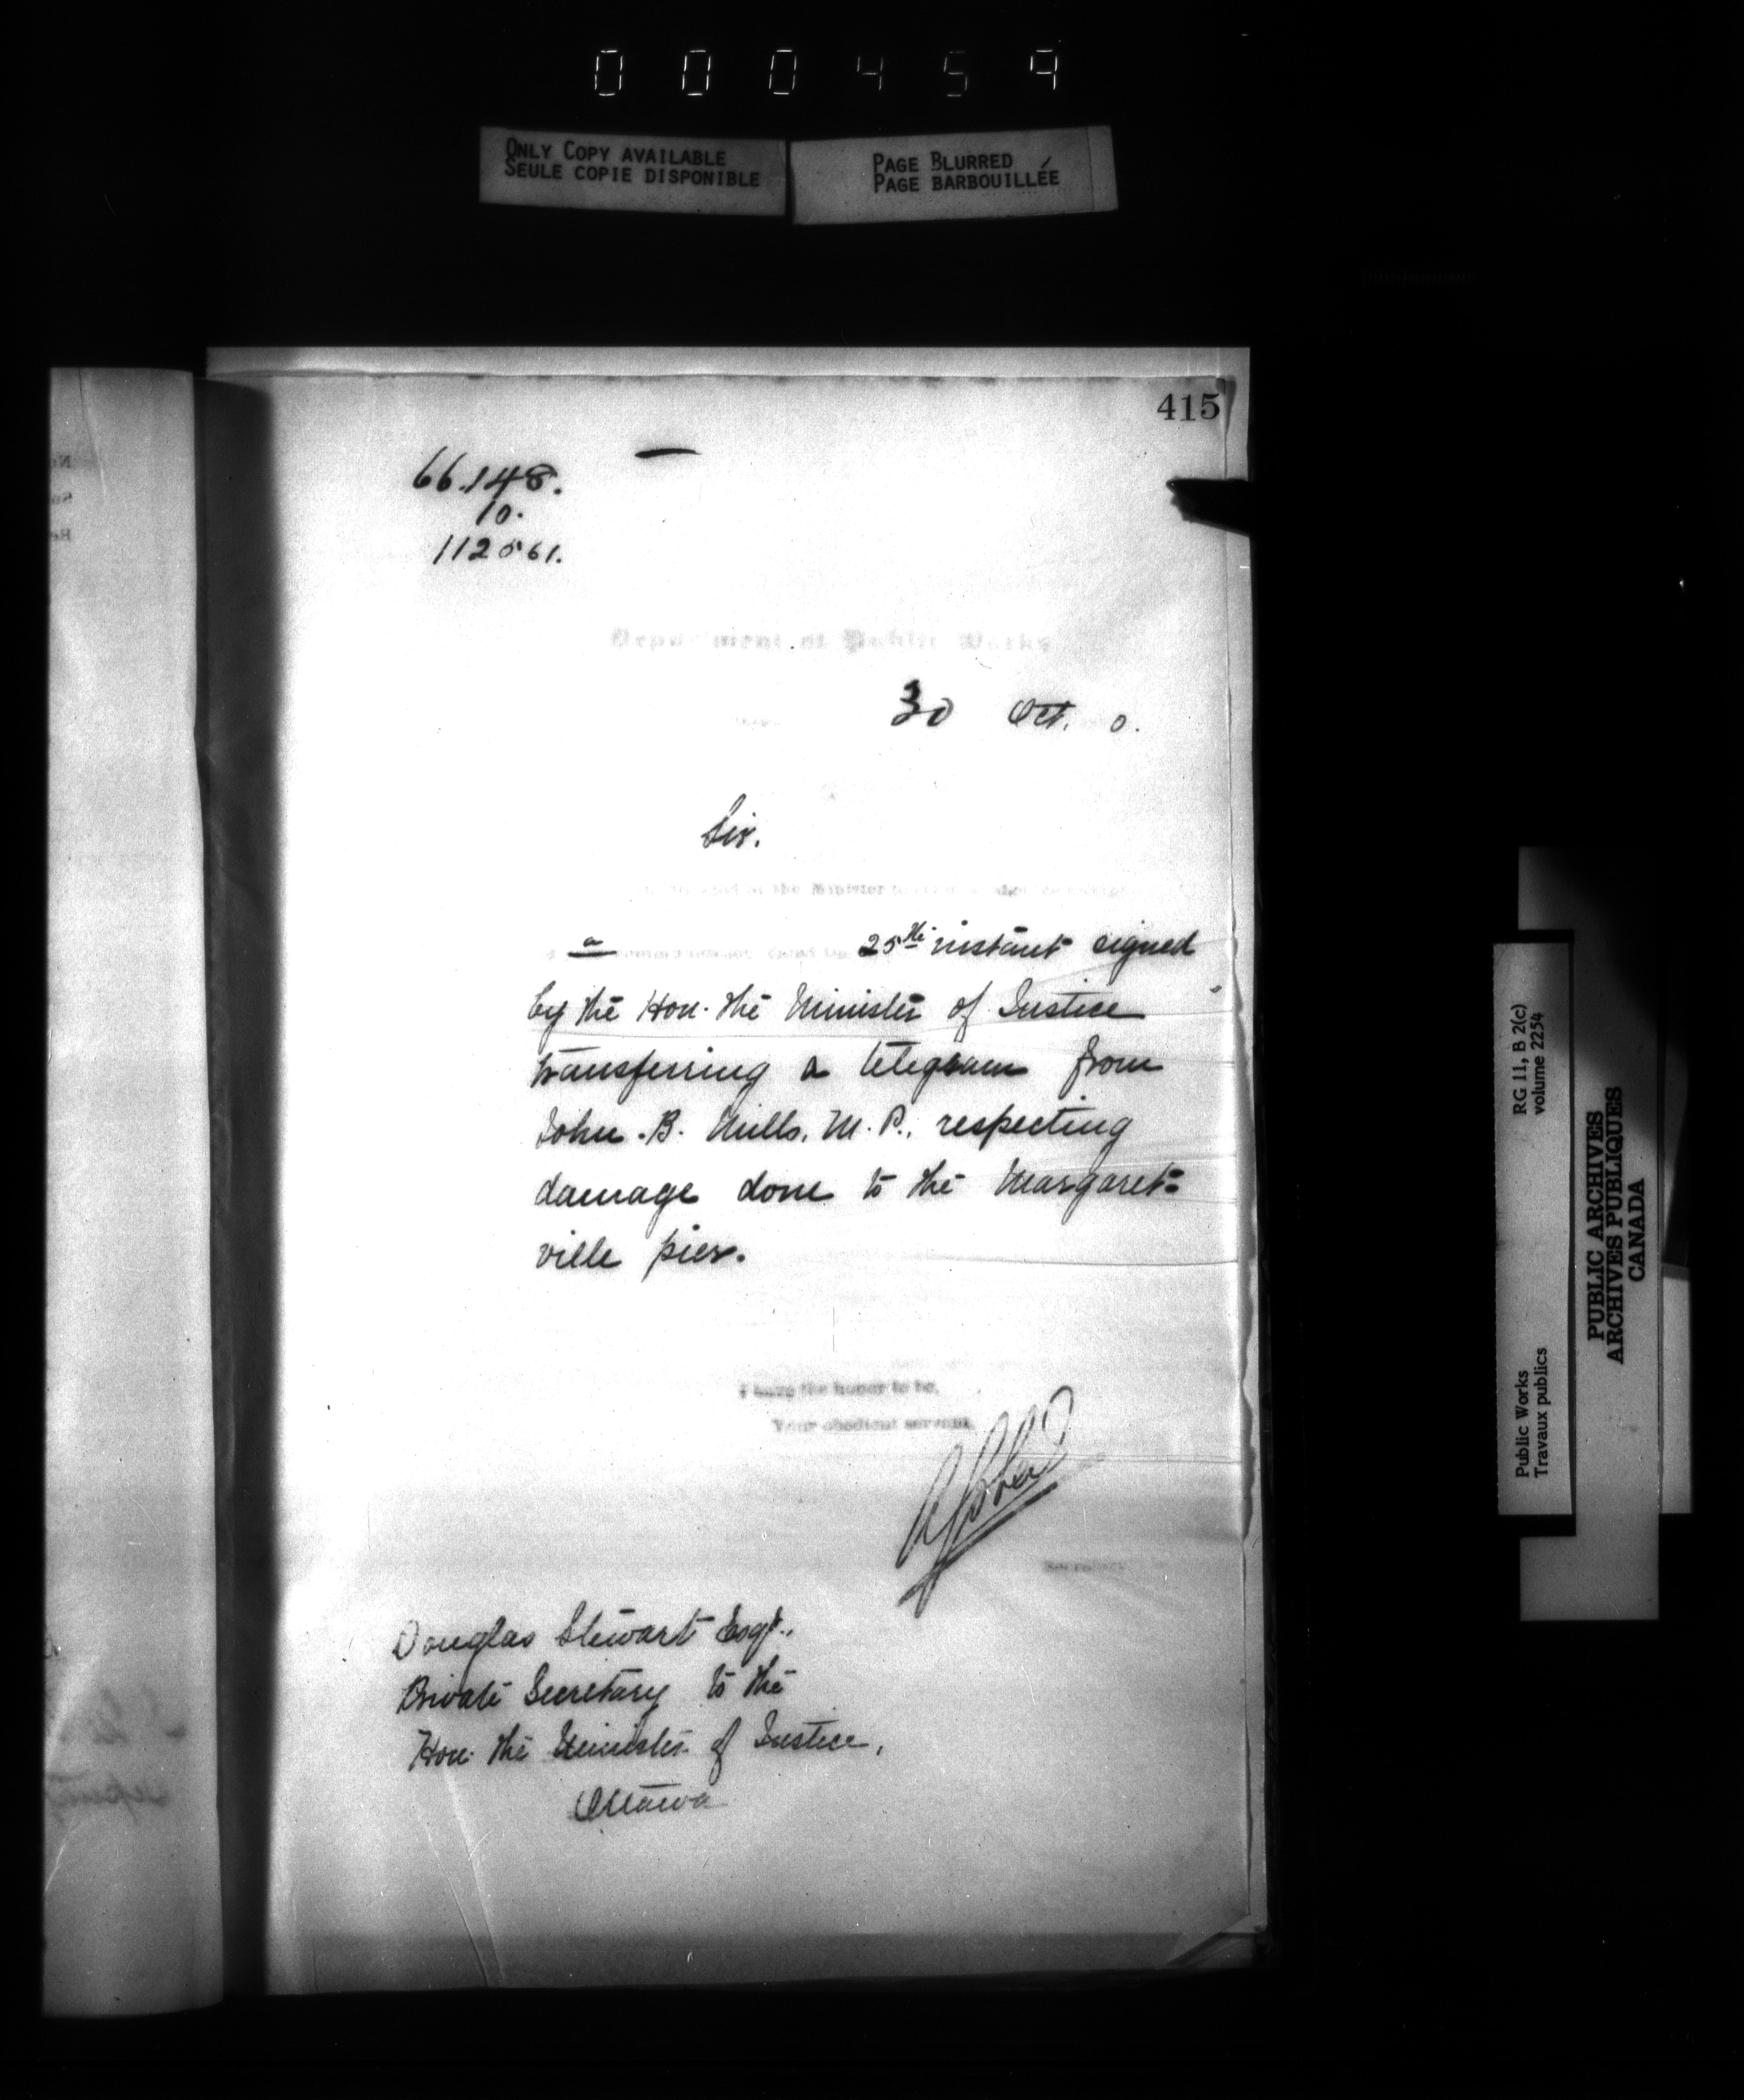 000459
ONLY COPY AVAILABLE
SEULE COPIE DISPONIBLE
PAGE BLURRED
PAGE BARBOUILLÉE
415
66.148.
10.
112561.
Department of Public Works
30 Oct. 0.
Sir.
the Minister
a 25th instant signed
by the Hon. the Minister of Justice
transferring a telegram from
John. B. Mills, M. P., respecting
damage done to the Margaret=
ville pier.
I have the honor to be,
Your obedient servant,
Secretary
Douglas Stewart Esqr.,
Private Secretary to the
Hon. the Minister of Justice,
Ottawa
RG 11, B 2(c)
volume 2254
Public Works
Travaux publics
PUBLIC ARCHIVES
ARCHIVES PUBLIQUES
CANADA